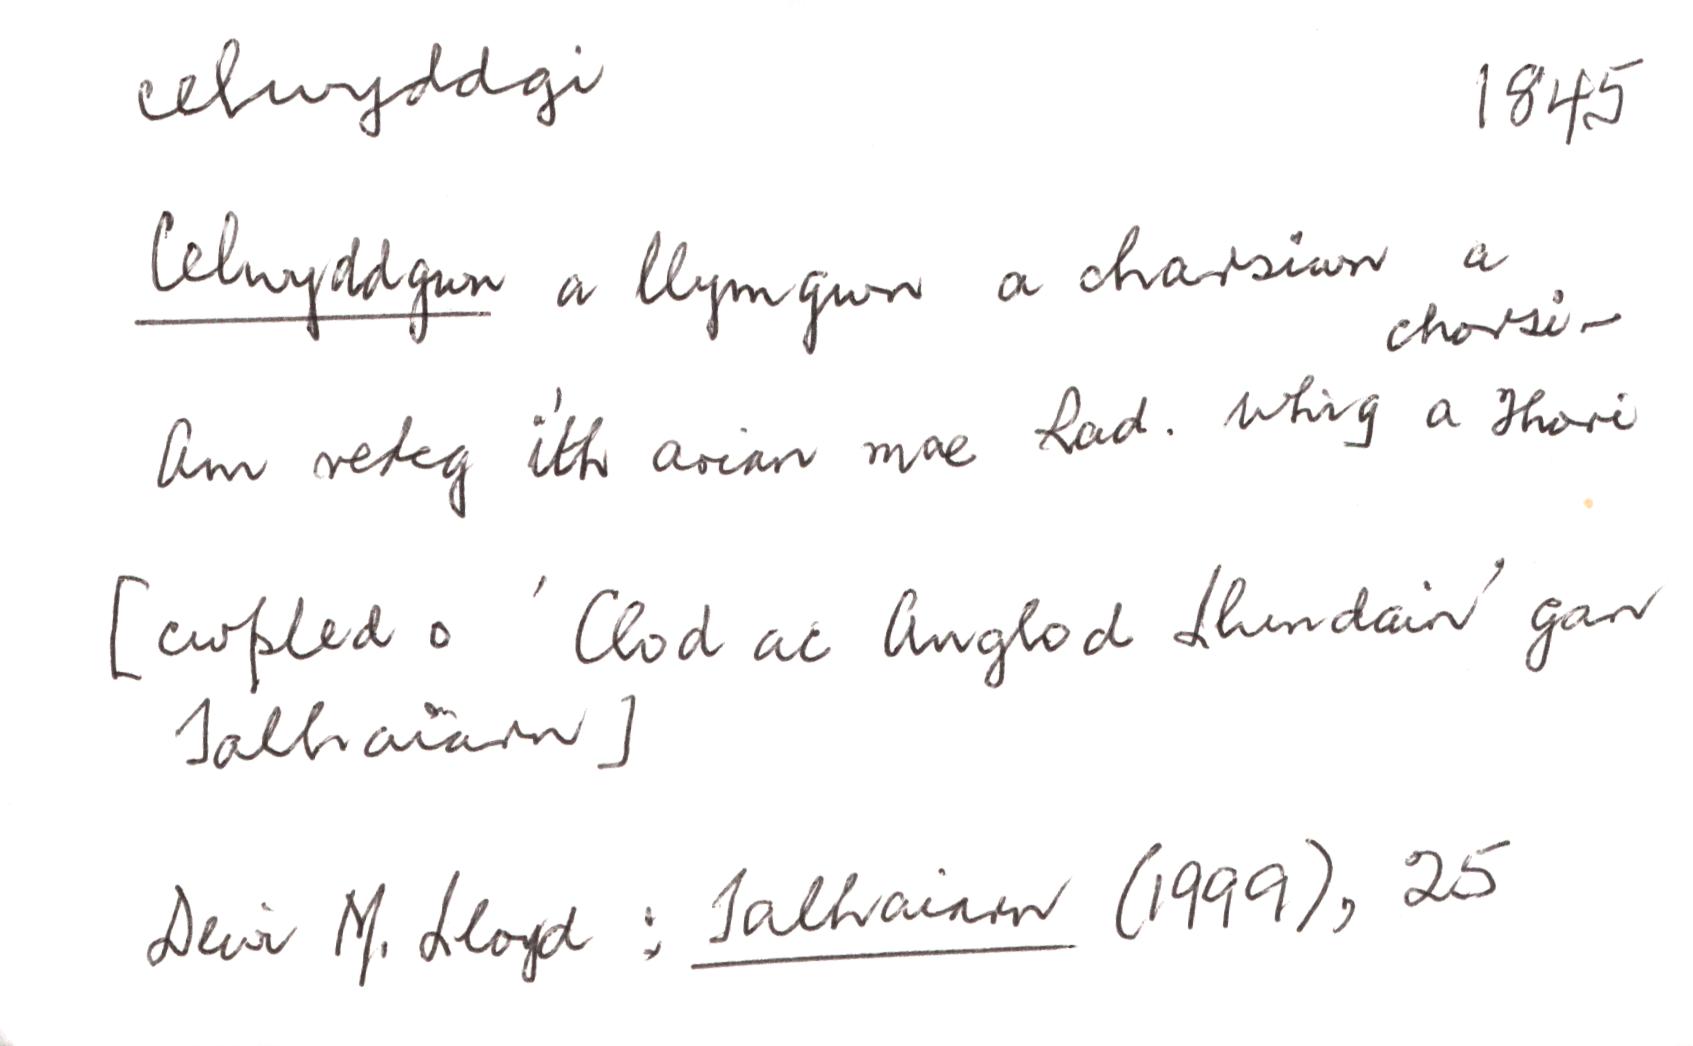 celwyddgi 1845
Celwyddgwn a llymgwn a charsiwn a
chorsi-
Am redeg i'th arian mae Rad. Whig a Thori
[cwpled o 'Clod ac Anglod Llundain' gan
Talhaiarn]
Dewi M. Lloyd : Talhaiarn (1999), 25